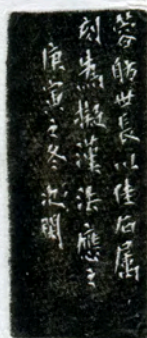 蓉舫世長以佳石属
刻爲擬漢法應之
庚寅之冬次閑